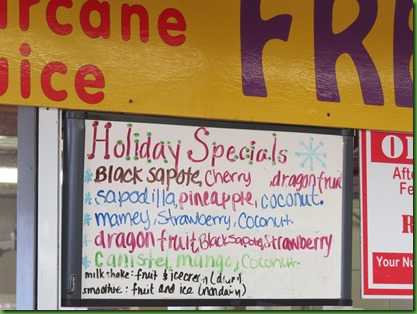 arcane
uice
FR
Holiday Specials
BLACK SAPOTE, Cherry dragonfruit
sapodilla, pineapple, coconut.
mamey, Strawberry, Coconut.
dragonfruit, Black sapote, Strawberry
canistel, mango, Coconut.
milkshake: fruit & icecream (dairy)
smoothie: fruit and ice (nondairy)
Afte
Fe
Your Nu